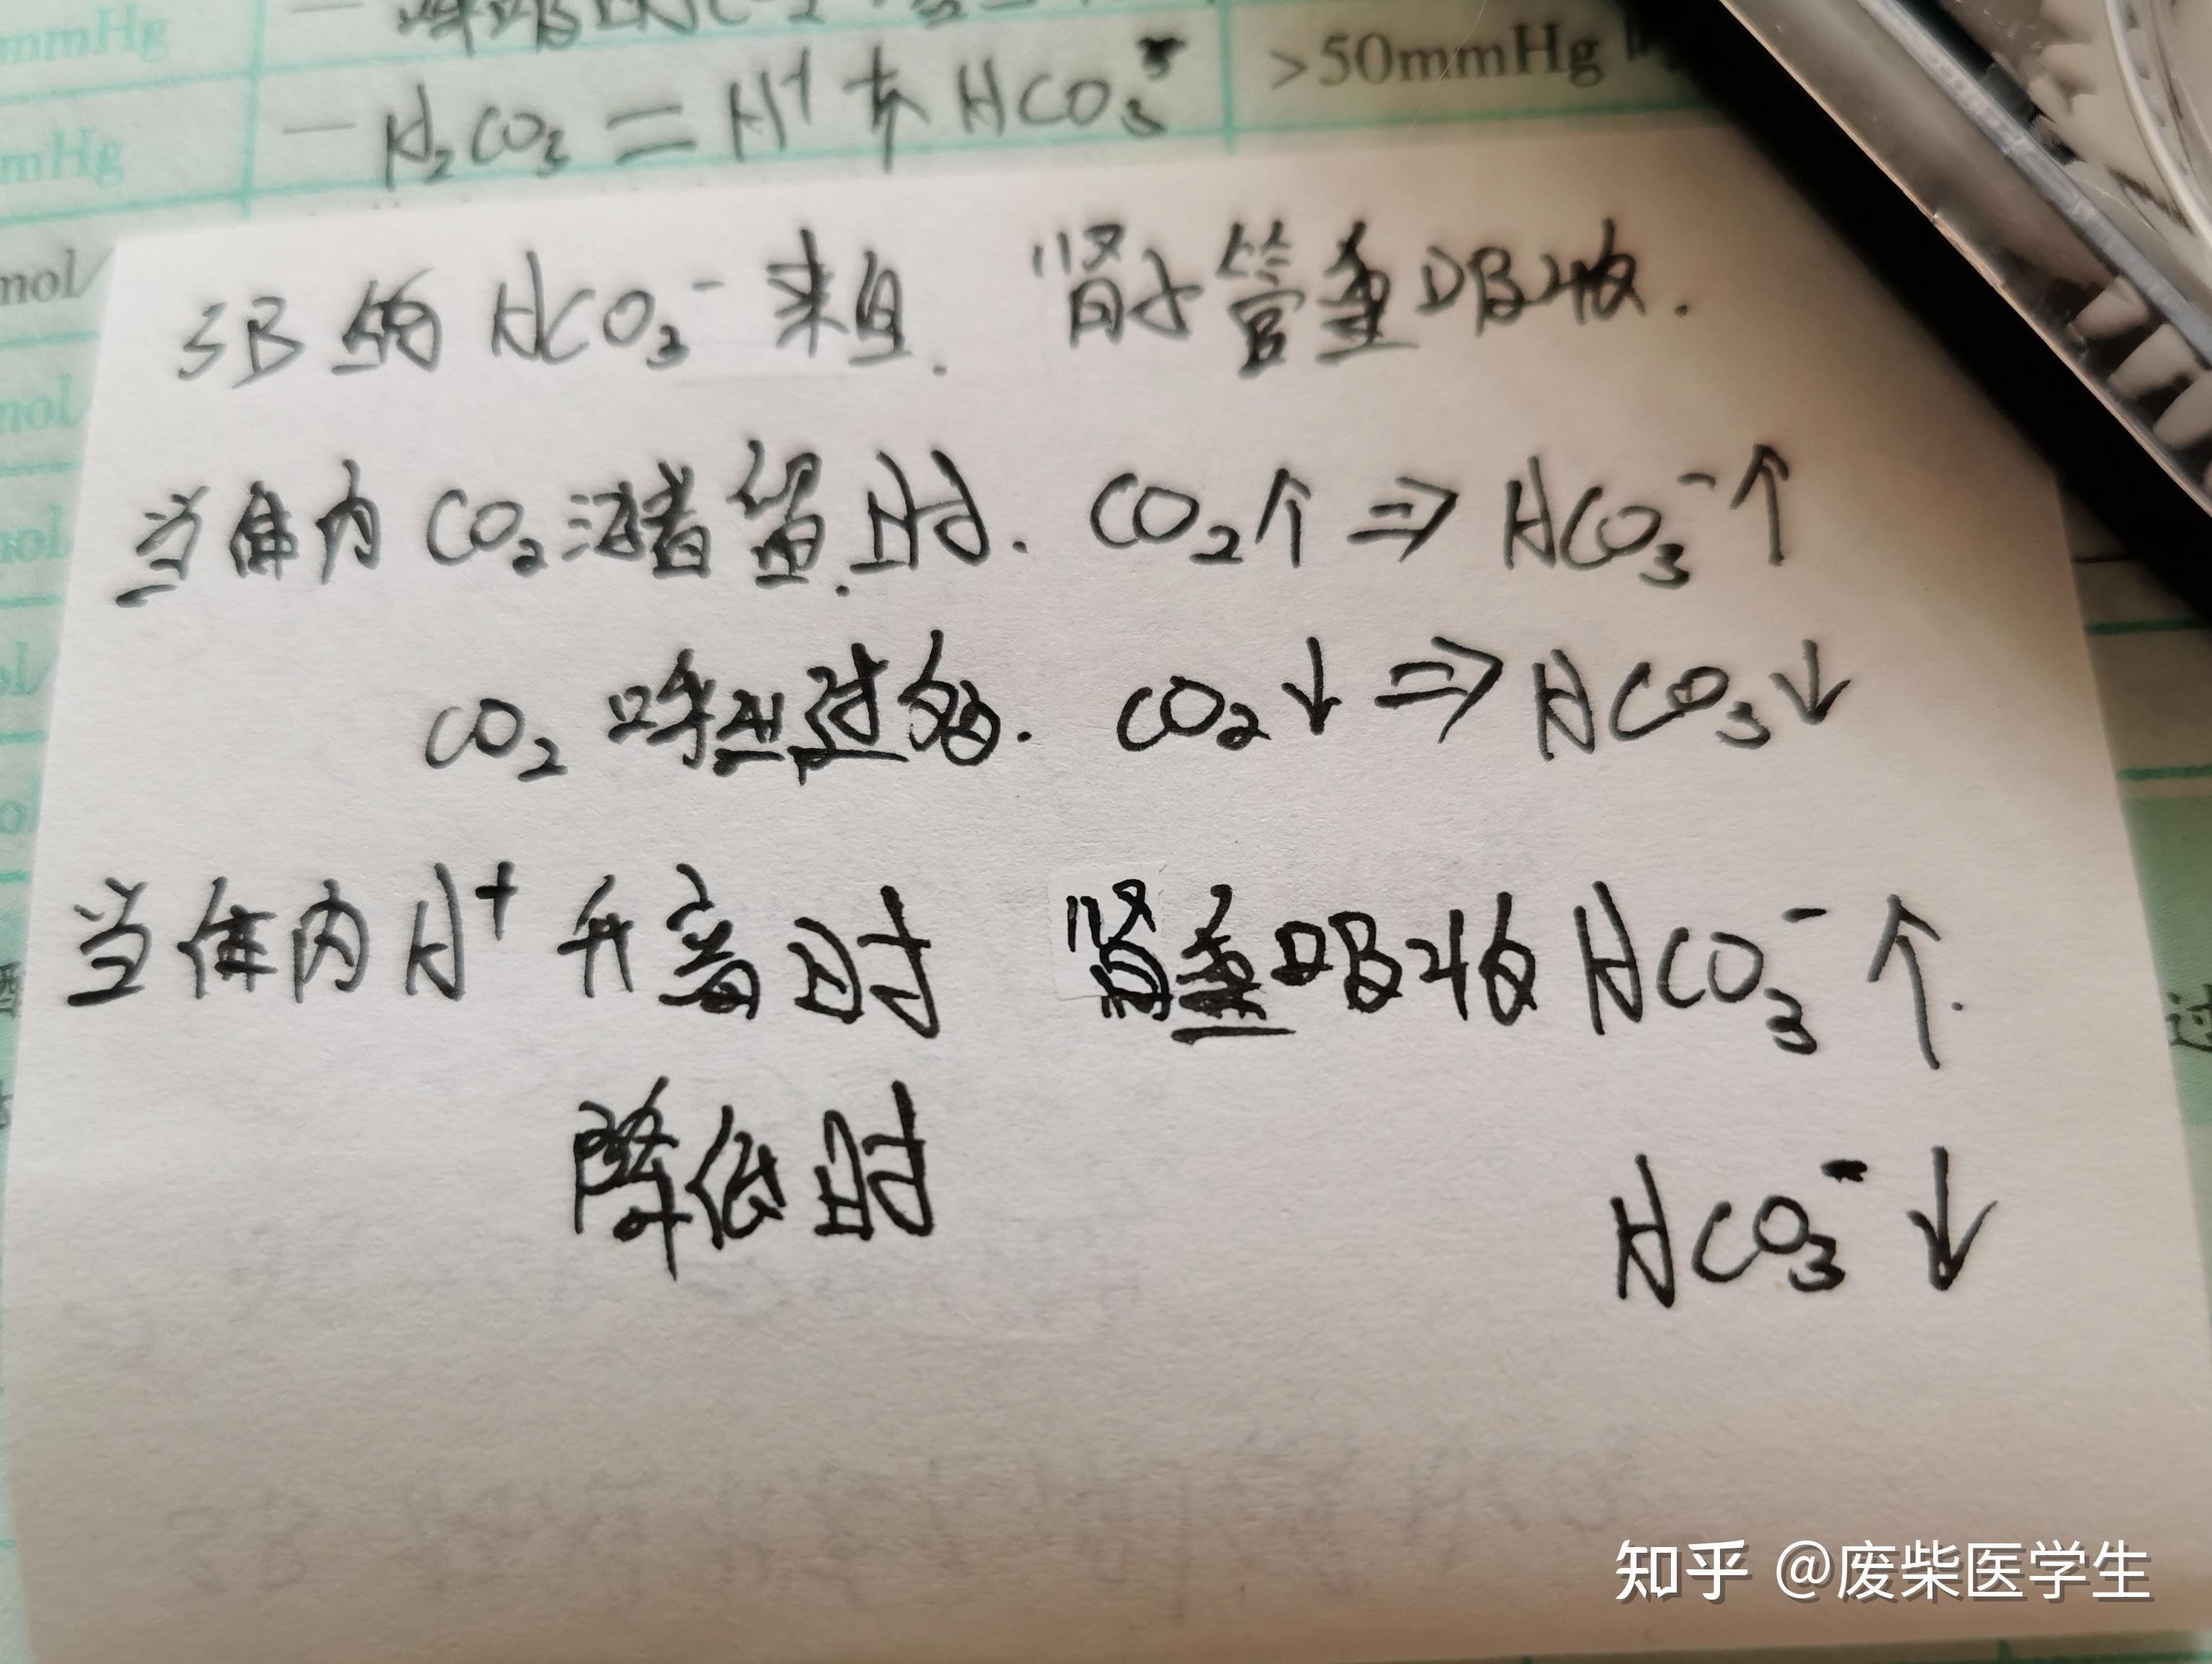 mmHg
>50mmHg
mHg
— H₂CO₃ = H⁺ + HCO₃⁻
mol/
SB的 HCO₃⁻ 来自. 肾小管重吸收.
mol/
当体内 CO₂ 潴留时. CO₂↑ ⇒ HCO₃⁻↑
mol
CO₂ 呼出过多. CO₂↓ ⇒ HCO₃↓
当体内 H⁺ 升高时 肾重吸收 HCO₃⁻ ↑.
过
降低时 HCO₃⁻ ↓
知乎 @废柴医学生